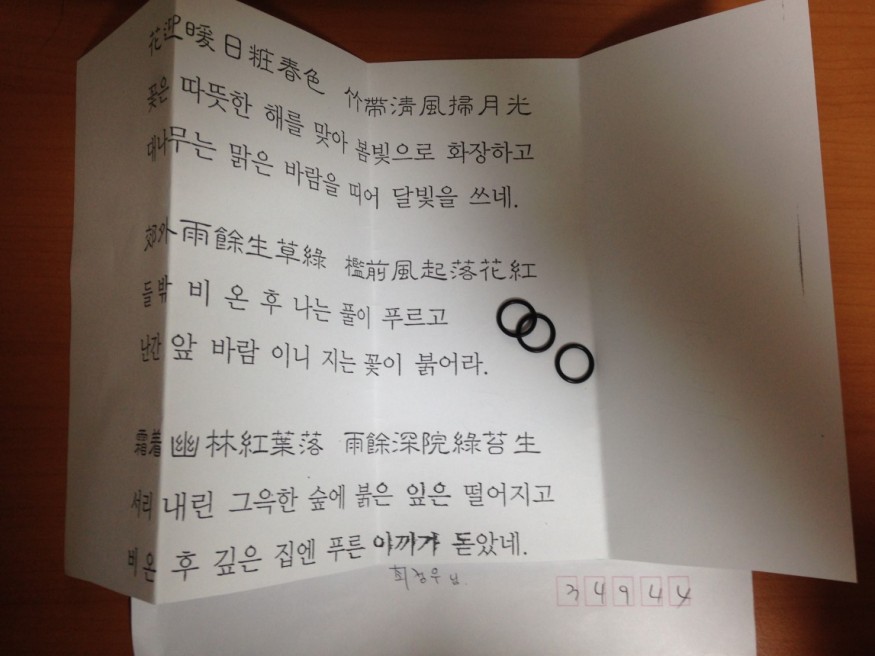 花迎暖日粧春色 竹帶淸風掃月光
꽃은 따뜻한 해를 맞아 봄빛으로 화장하고
대나무는 맑은 바람을 띠어 달빛을 쓰네.
郊外雨餘生草綠 檻前風起落花紅
들 밖 비 온 후 나는 풀이 푸르고
난간 앞 바람 이니 지는 꽃이 붉어라.
霜着幽林紅葉落 雨餘深院綠苔生
서리 내린 그윽한 숲에 붉은 잎은 떨어지고
비 온 후 깊은 집엔 푸른 돋았네.
님
34944